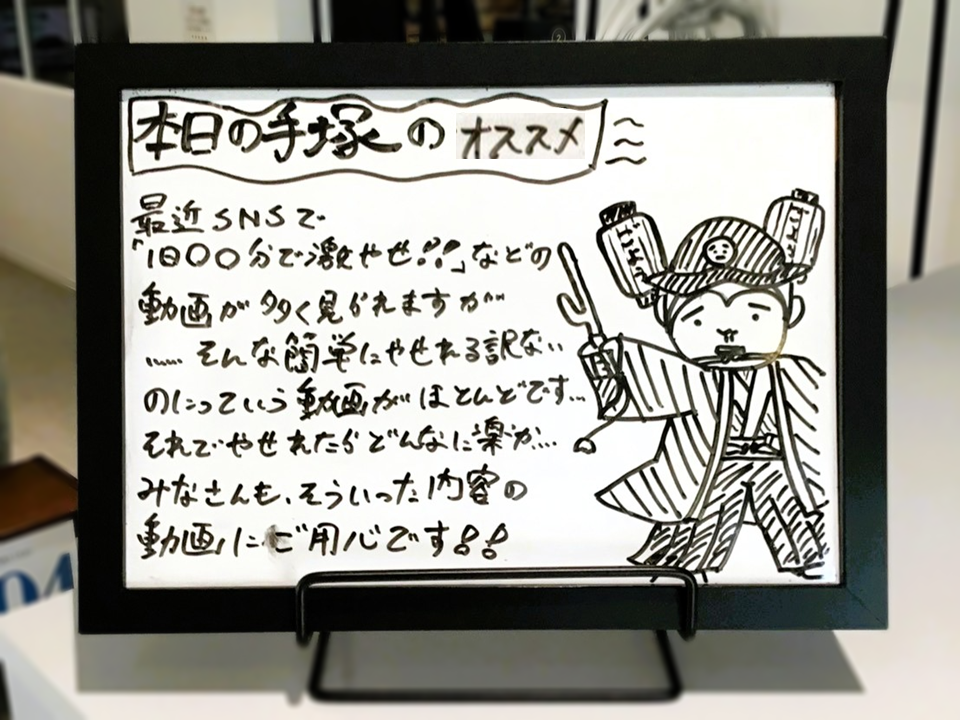 本日の手塚のオススメ
最近SNSで
「1日〇〇分で激やせ!!」などの
動画が多く見られますが
……そんな簡単にやせれる訳ない
のにっていう動画がほとんどです…
それでやせれたらどんなに楽か…
みなさんも、そういった内容の
動画にご用心です!!